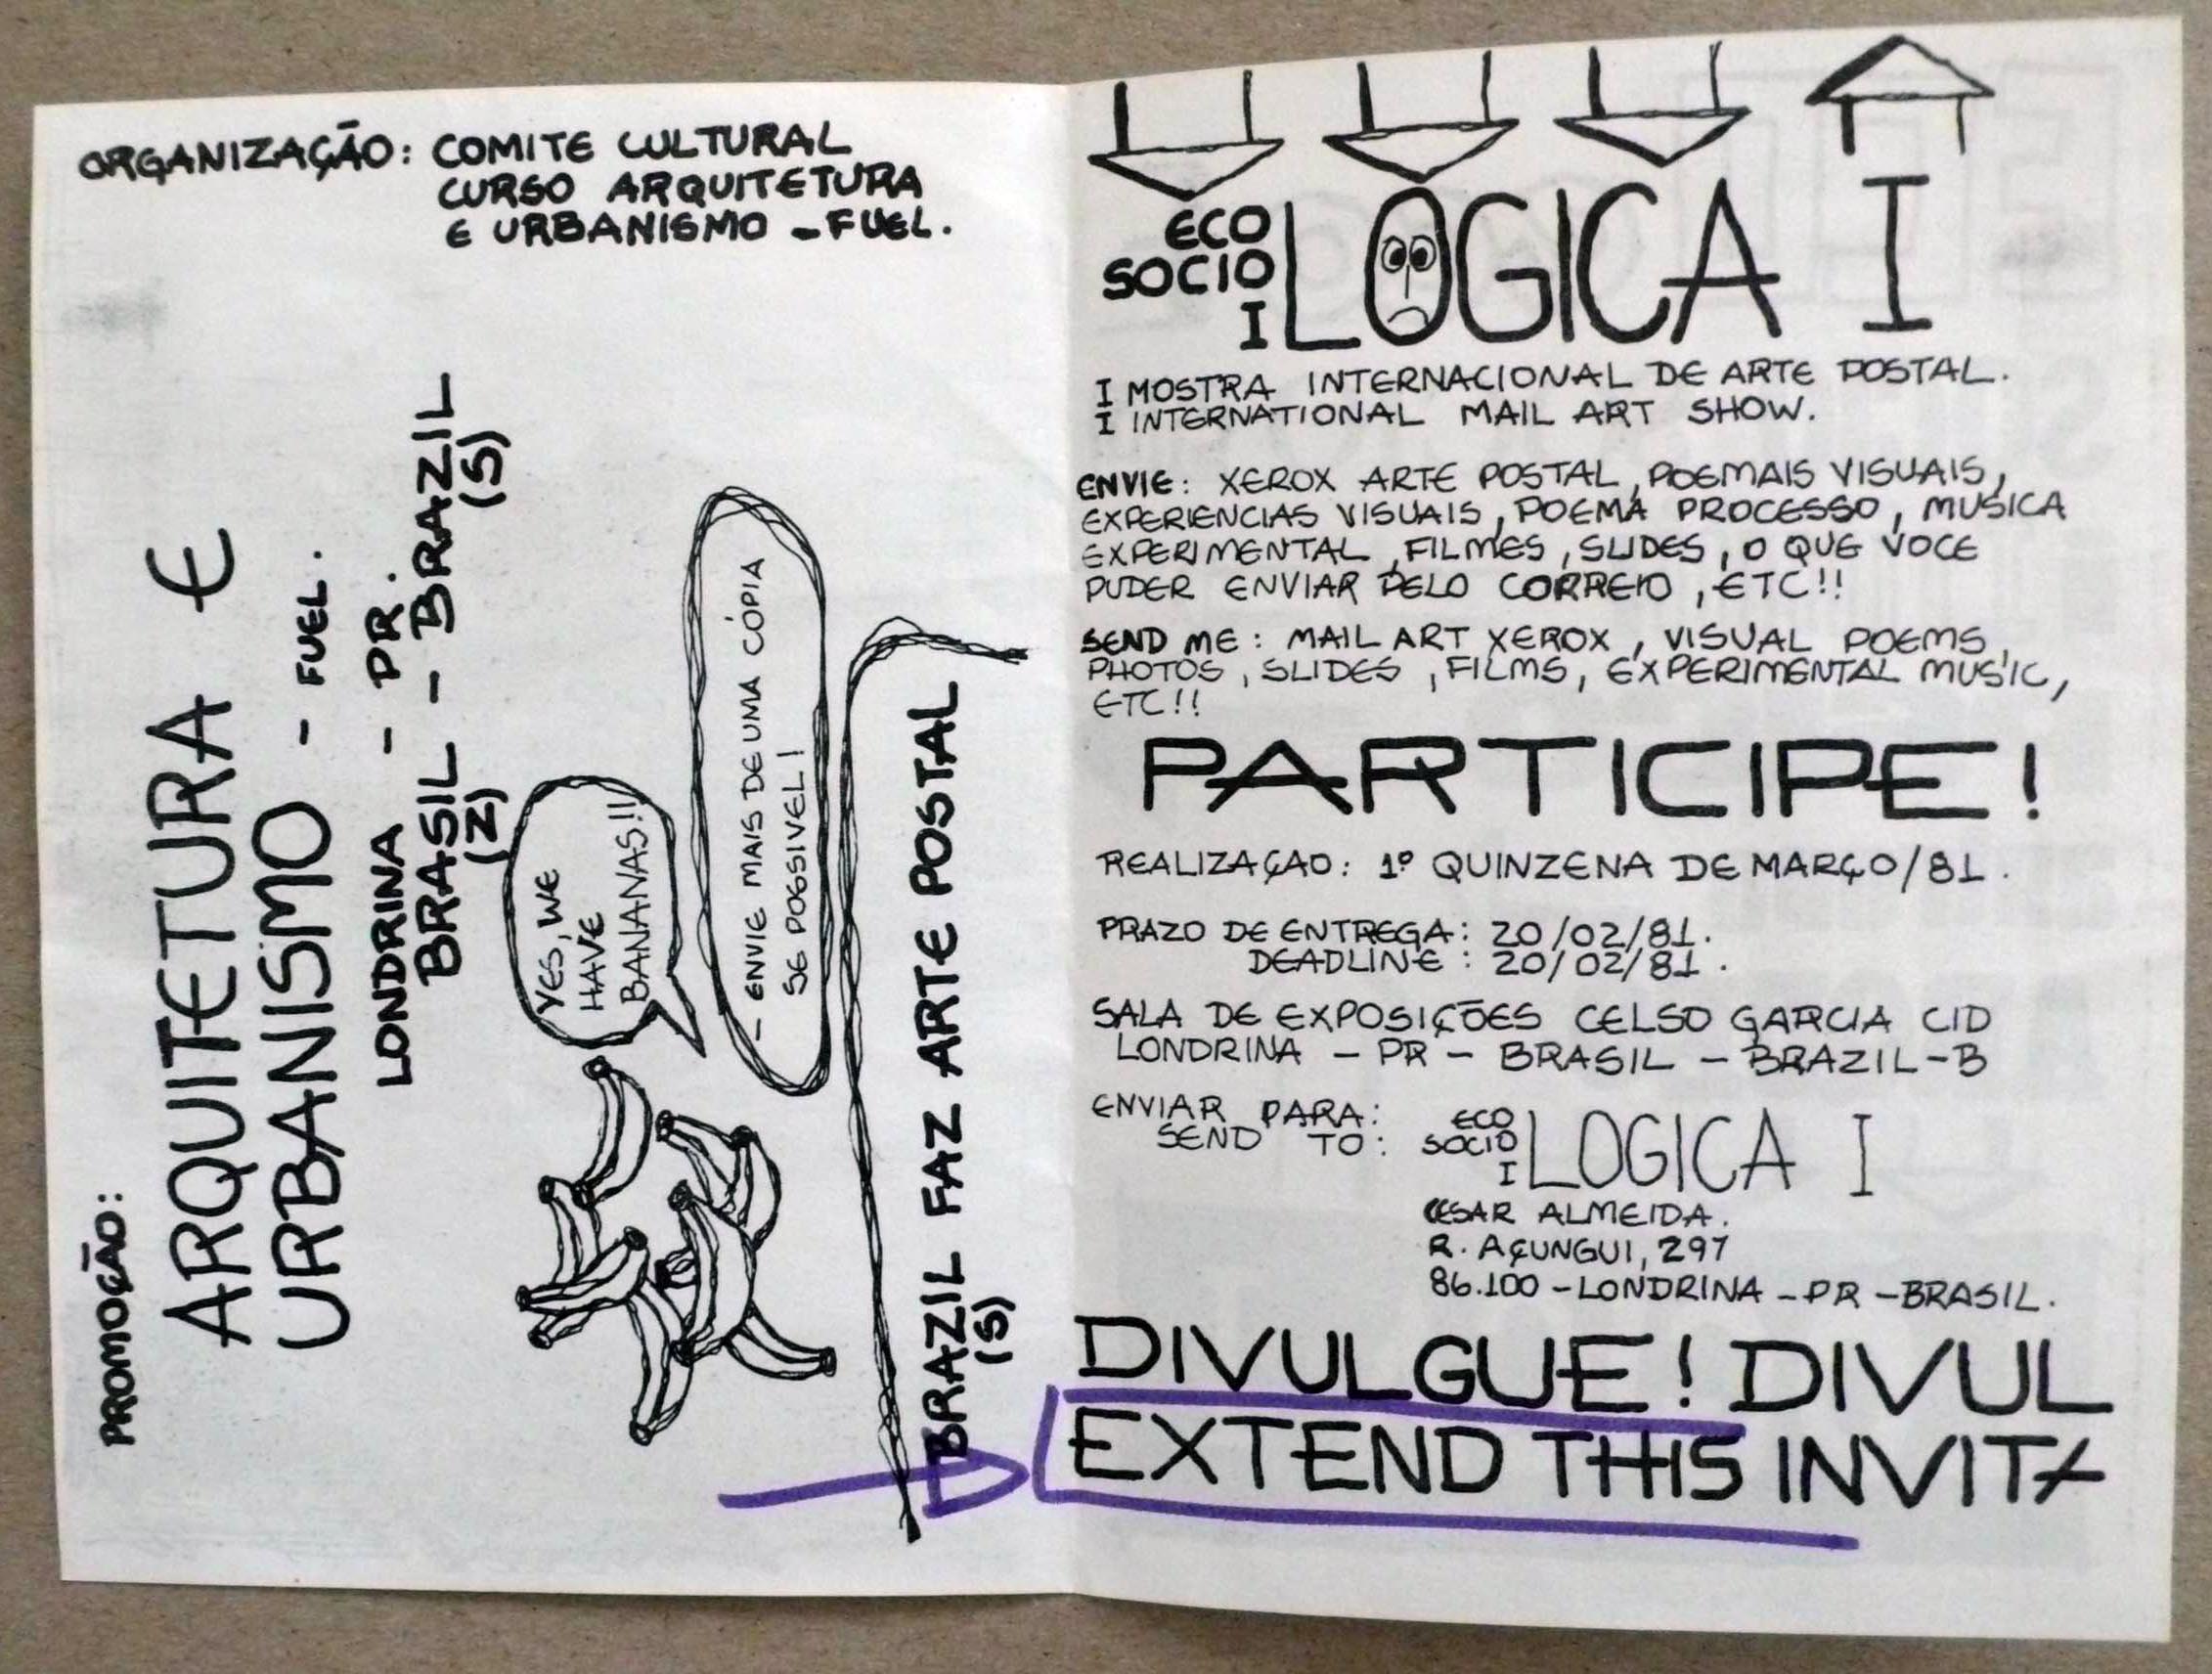 ORGANIZAÇÃO: COMITE CULTURAL
CURSO ARQUITETURA
E URBANISMO - FUEL.
PROMOÇÃO:
ARQUITETURA E
URBANISMO - FUEL.
LONDRINA - PR.
BRASIL - BRAZIL
(Z) (S)
YES, WE
HAVE
BANANAS!!
- ENVIE MAIS DE UMA CÓPIA
SE POSSIVEL!
BRAZIL FAZ ARTE POSTAL
(S)
ECO
SOCIO
I LOGICA I
I MOSTRA INTERNACIONAL DE ARTE POSTAL.
I INTERNATIONAL MAIL ART SHOW.
ENVIE: XEROX ARTE POSTAL, POEMAIS VISUAIS,
EXPERIENCIAS VISUAIS, POEMA PROCESSO, MUSICA
EXPERIMENTAL, FILMES, SLIDES, O QUE VOCE
PUDER ENVIAR PELO CORREIO, ETC!!
SEND ME: MAIL ART XEROX, VISUAL POEMS,
PHOTOS, SLIDES, FILMS, EXPERIMENTAL MUSIC,
ETC!!
PARTICIPE!
REALIZAÇAO: 1º QUINZENA DE MARÇO/81.
PRAZO DE ENTREGA: 20/02/81.
DEADLINE: 20/02/81.
SALA DE EXPOSIÇÕES CELSO GARCIA CID
LONDRINA - PR - BRASIL - BRAZIL - B
ENVIAR PARA:
SEND TO:
ECO
SOCIO
I LOGICA I
CESAR ALMEIDA.
R. AÇUNGUI, 297
86.100 - LONDRINA - PR - BRASIL.
DIVULGUE! DIVUL
EXTEND THIS INVITA